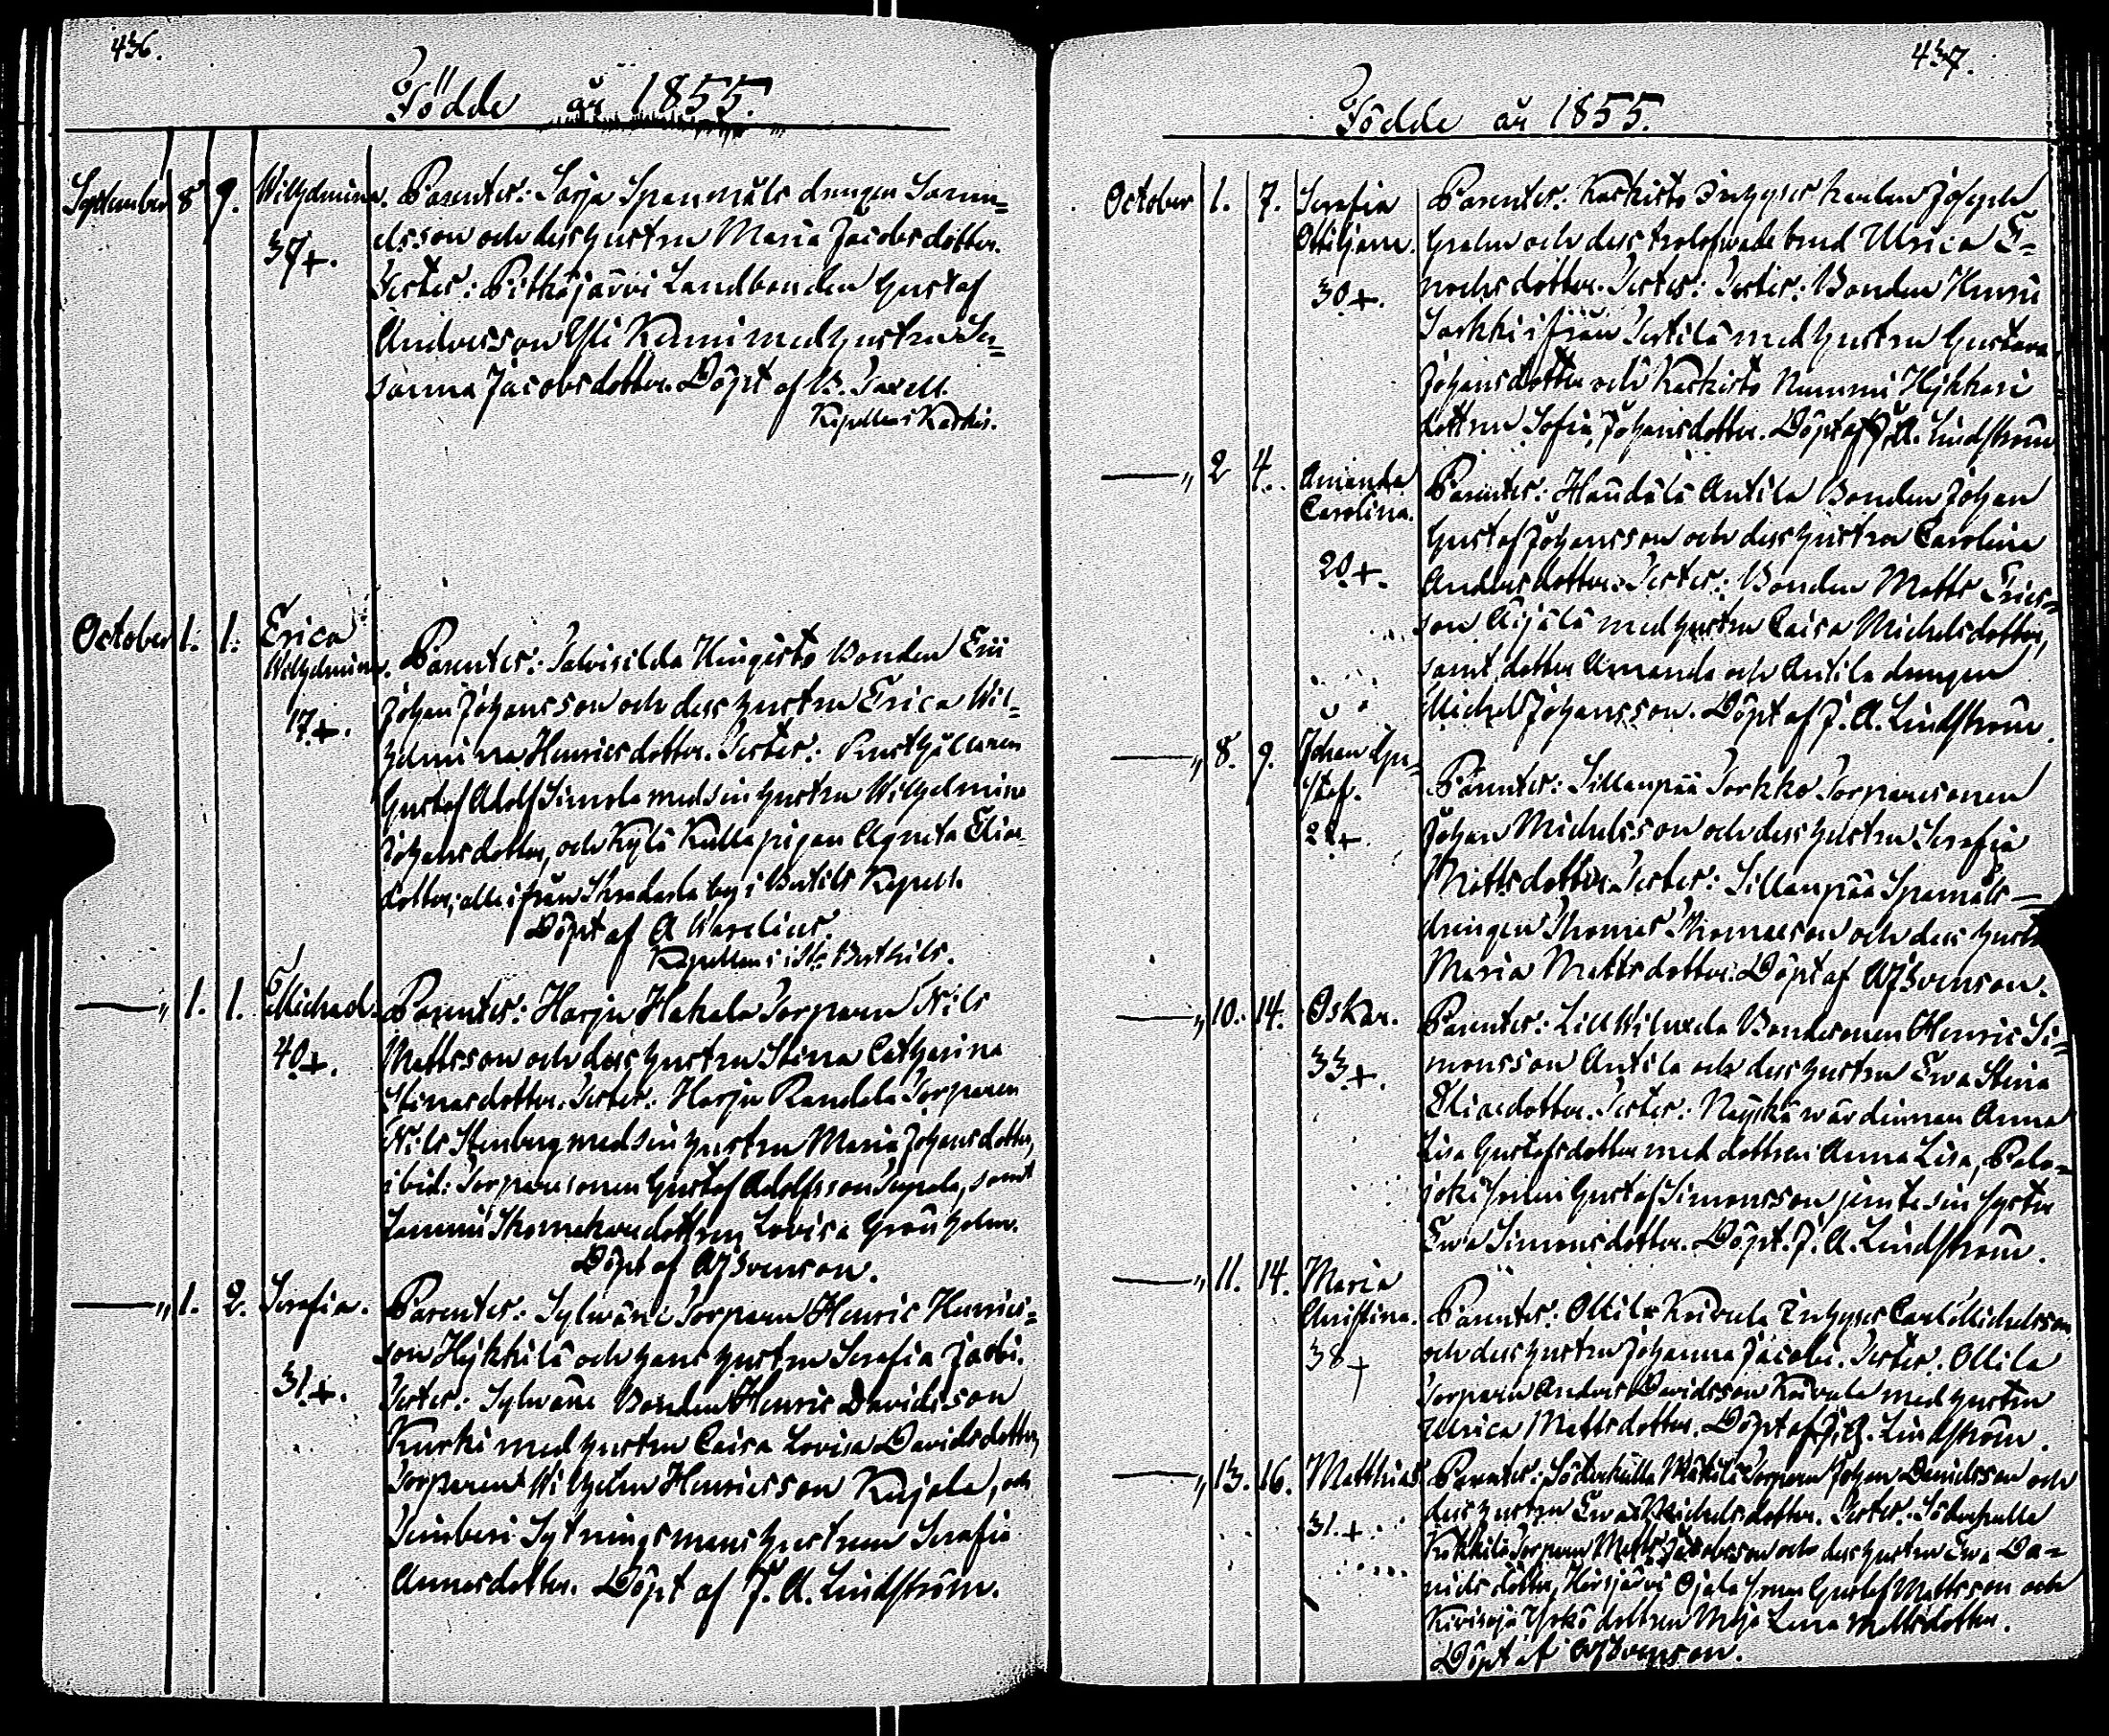 436.
Födde år 1855.
September 8 9. Wilhelmina. Parenter: Sarja Spanmåls drengen Samu-
37+. elsson och dess hustru Maria Jacobsdotter.
Tester: Pitkäjärvi Landbonden Gustaf
Andersson Yli Kenni med hustru Su-
sanna Jacobsdotter. Döpt af B. Taxell.
Kapellan i Karkis.
October 1. 1. Erica
Wilhelmina. Parenter: Bonden Eiii
17+. Johan Johansson och dess hustru Erica Wil-
helmina Henricsdotter. Tester: Rusthållaren
Gustaf Adolf Simola med sin hustru Wilhelmina
Johansdotter, och Kylä Kulla pigan Agneta Elias-
dotter, alla ifrån by i Bertils Kapell.
Döpt af A Warelius.
Kapellan i S:t Berthils.
—„ 1. 1. Michael. Parenter: Harju Hakala Torparen Nils
40+. Mattsson och dess hustru Stina Catharina
Stinasdotter. Tester: Harju Randala Torparen
Nils Stenberg med sin hustru Maria Johansdotter,
ibid: Torparesonen Gustaf Adolfsson Seppala, samt
Skomakaredottren Lovisa Grönholm.
Döpt af AJSvenson.
—„ 1. 2. Serafia. Parenter: Sylwäne Torparen Henric Henrics-
son Hykkilä och hans hustru Serafia Jacobi.
31+. Tester: Sylwäne Bonden Henric Davidsson
Kurki med hustru Caisa Lovisa Davidsdotter,
Torparen Wilhelm Henricsson Kujala, och
Sytningsmans hustrun Serafia
Annasdotter. Döpt af J. A. Lindström.
437.
Födde år 1855.
October 1. 7. Serafia Parenter: Karkisto Inhyses karlen Joseph
Ottiljana. Grahn och dess trolofwade brud Ulrica E-
30+. nochsdotter. Tester: Tester: Bonden Henric
Sarkki ifrån Tertilä med hustru Gustava
Johansdotter och Karkisto Nummi Hykkeri
dottren Sofia Johansdotter. Döpt af J. A. Lindström
—„ 2 4. Amanda Parenter: Haudala Antila Bonden Johan
Carolina. Gustaf Johansson och dess hustru Carolina
20+. Andersdotter. Tester: Bonden Matts Erics-
son Äijälä med hustru Caisa Michelsdotter,
samt dotter Amanda och Antila drengen
Michel Johansson. Döpt af J. A. Lindström.
—„ 8. 9. Johan Gu-
staf. Parenter: Sillanpää Torkko Torparesonen
22+. Johan Michelsson och dess hustru Serafia
Mattsdotter. Tester: Sillanpää Spanmåls-
drengen Thomas Thomasson och dess hustru
Maria Mattsdotter. Döpt af AJSvenson.
—„ 10. 14. Oskar. Parenter: Bondesonen Henric Si-
33+. monsson Antila och dess hustru Ewa Stina
Eliaedotter. Tester: wärdinnan Anna
Lisa Gustafsdotter med dottren Anna Lisa, Palo-
joki sonen Gustaf Simonsson jemte sin syster
Ewa Simonsdotter. Döpt. J. A. Lindström.
—„ 11. 14. Maria
Christina. Parenter: Ollila Koivula Inhyses Carl Michelsson
38+ och dess hustru Johanna Jacobi. Tester. Ollila
Torparen Anders Davidsson Koivula med hustru
Ulrica Mattsdotter. Döpt af J. A. Lindström.
—„ 13. 16. Matthias Parenter: Söderkulla Mäkilä Torparen Johan Danielsson och
31.+ dess hustru Ewa Michelsdotter. Tester: Söderkulla
Torparen Matts Jacobsson och dess hustru Ewa Da-
nidsdotter, Hirsjärvi Ojala sonen Gustaf Mattsson och
Kiviseja Yrkö dottren Maja Lena Mattsdotter.
Döpt af AJSvenson.